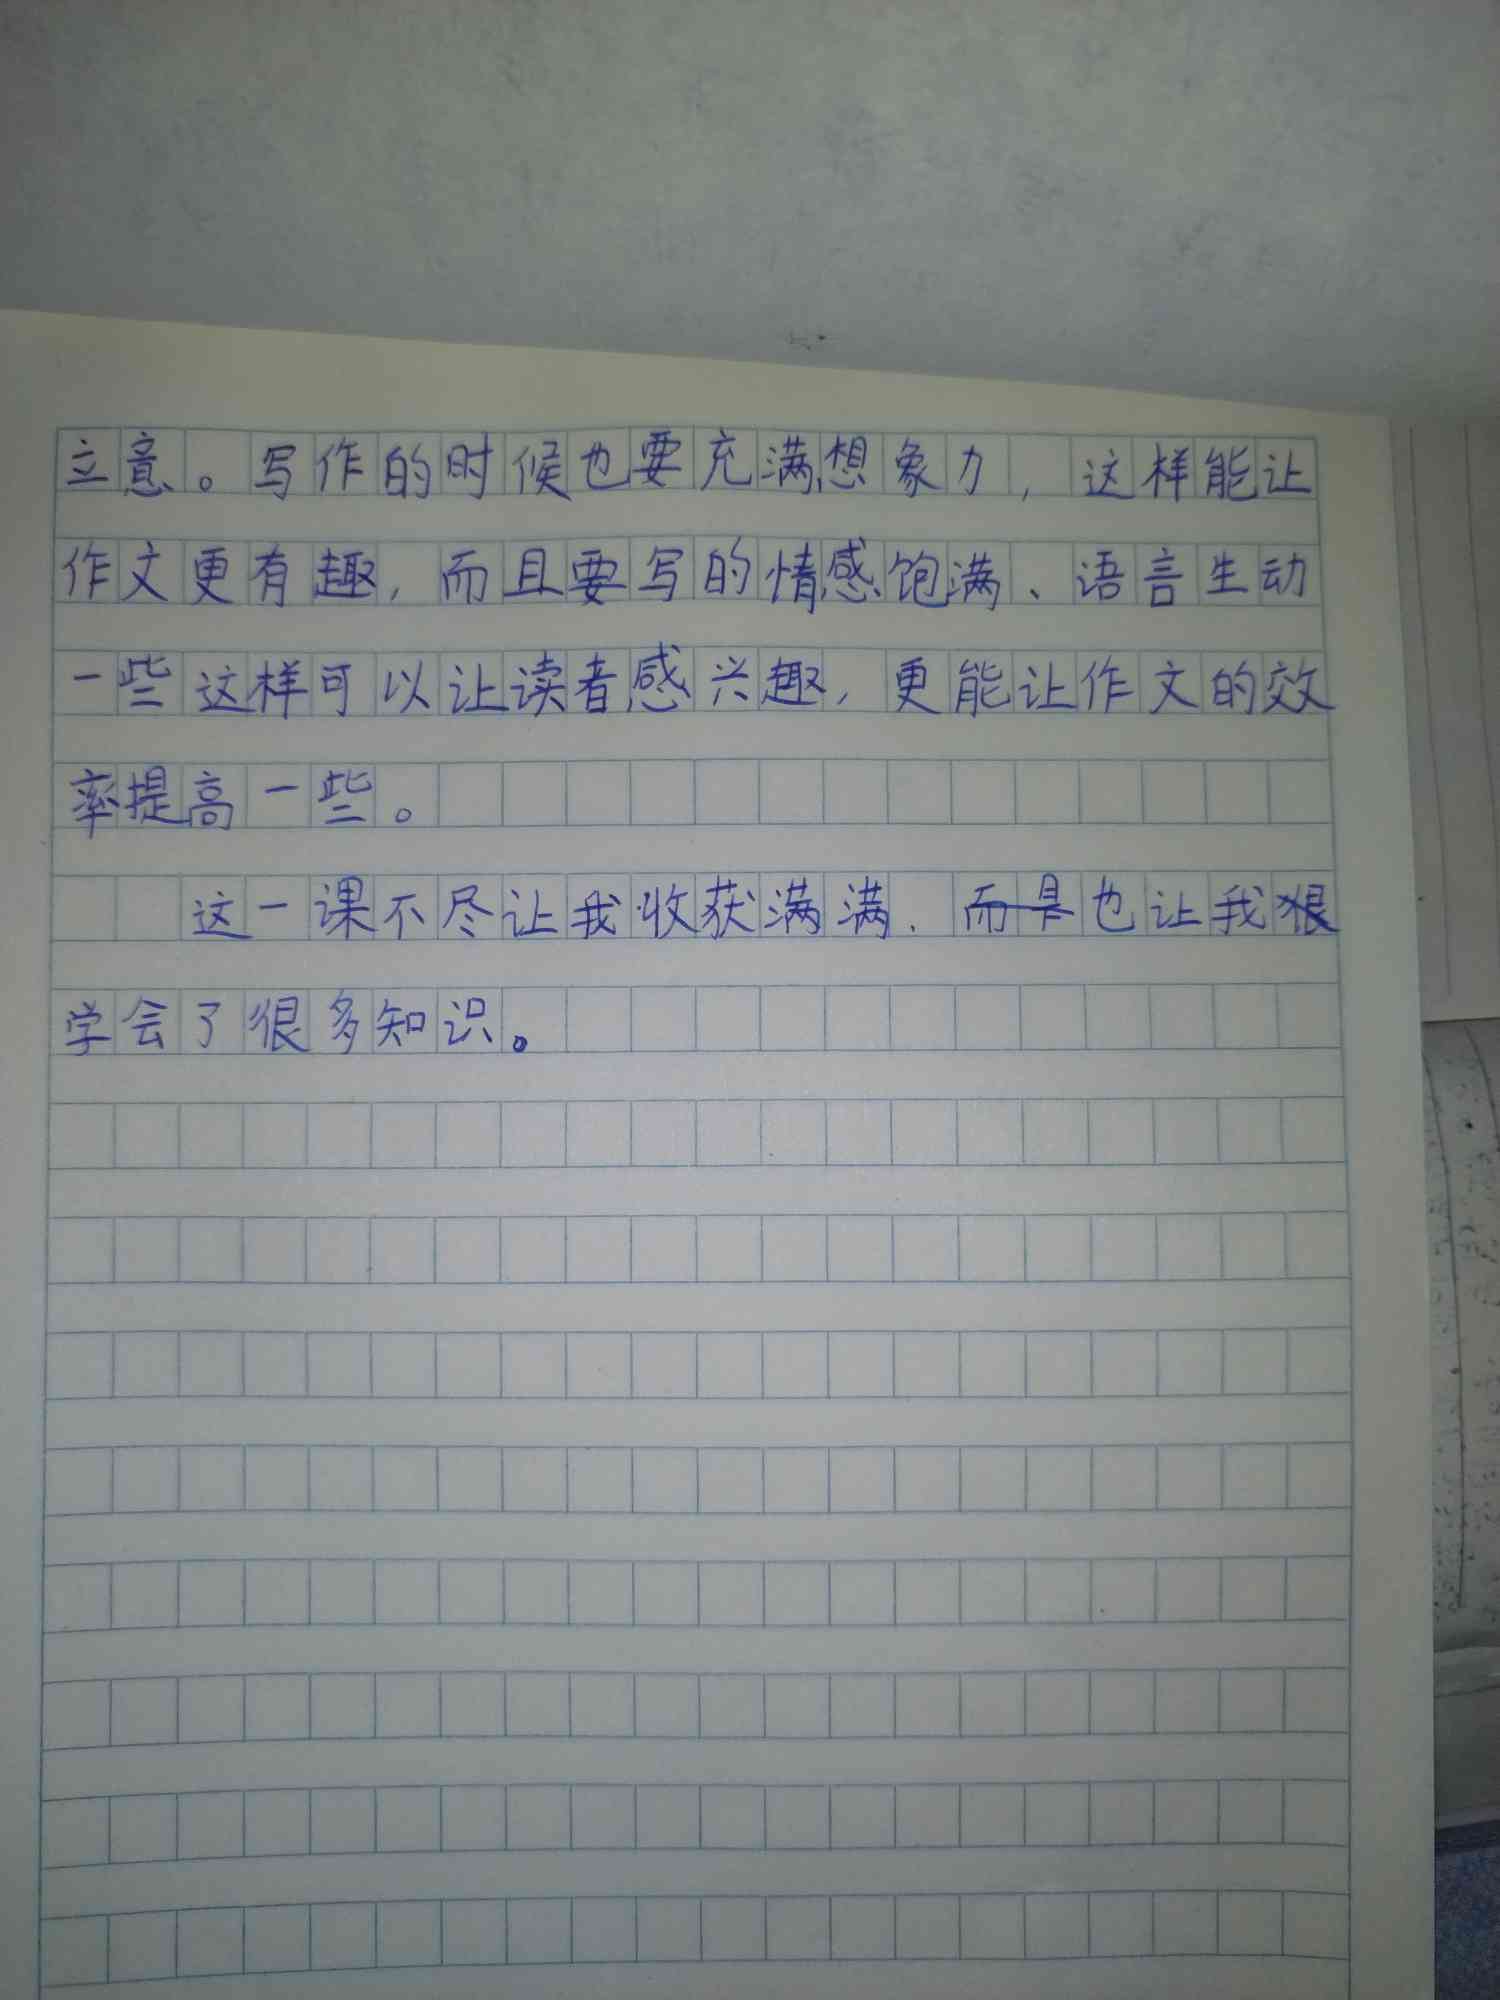 立意。写作的时候也要充满想象力，这样能让
作文更有趣，而且要写的情感饱满、语言生动
一些这样可以让读者感兴趣，更能让作文的效
率提高一些。
这一课不尽让我收获满满，而是也让我狠
学会了很多知识。